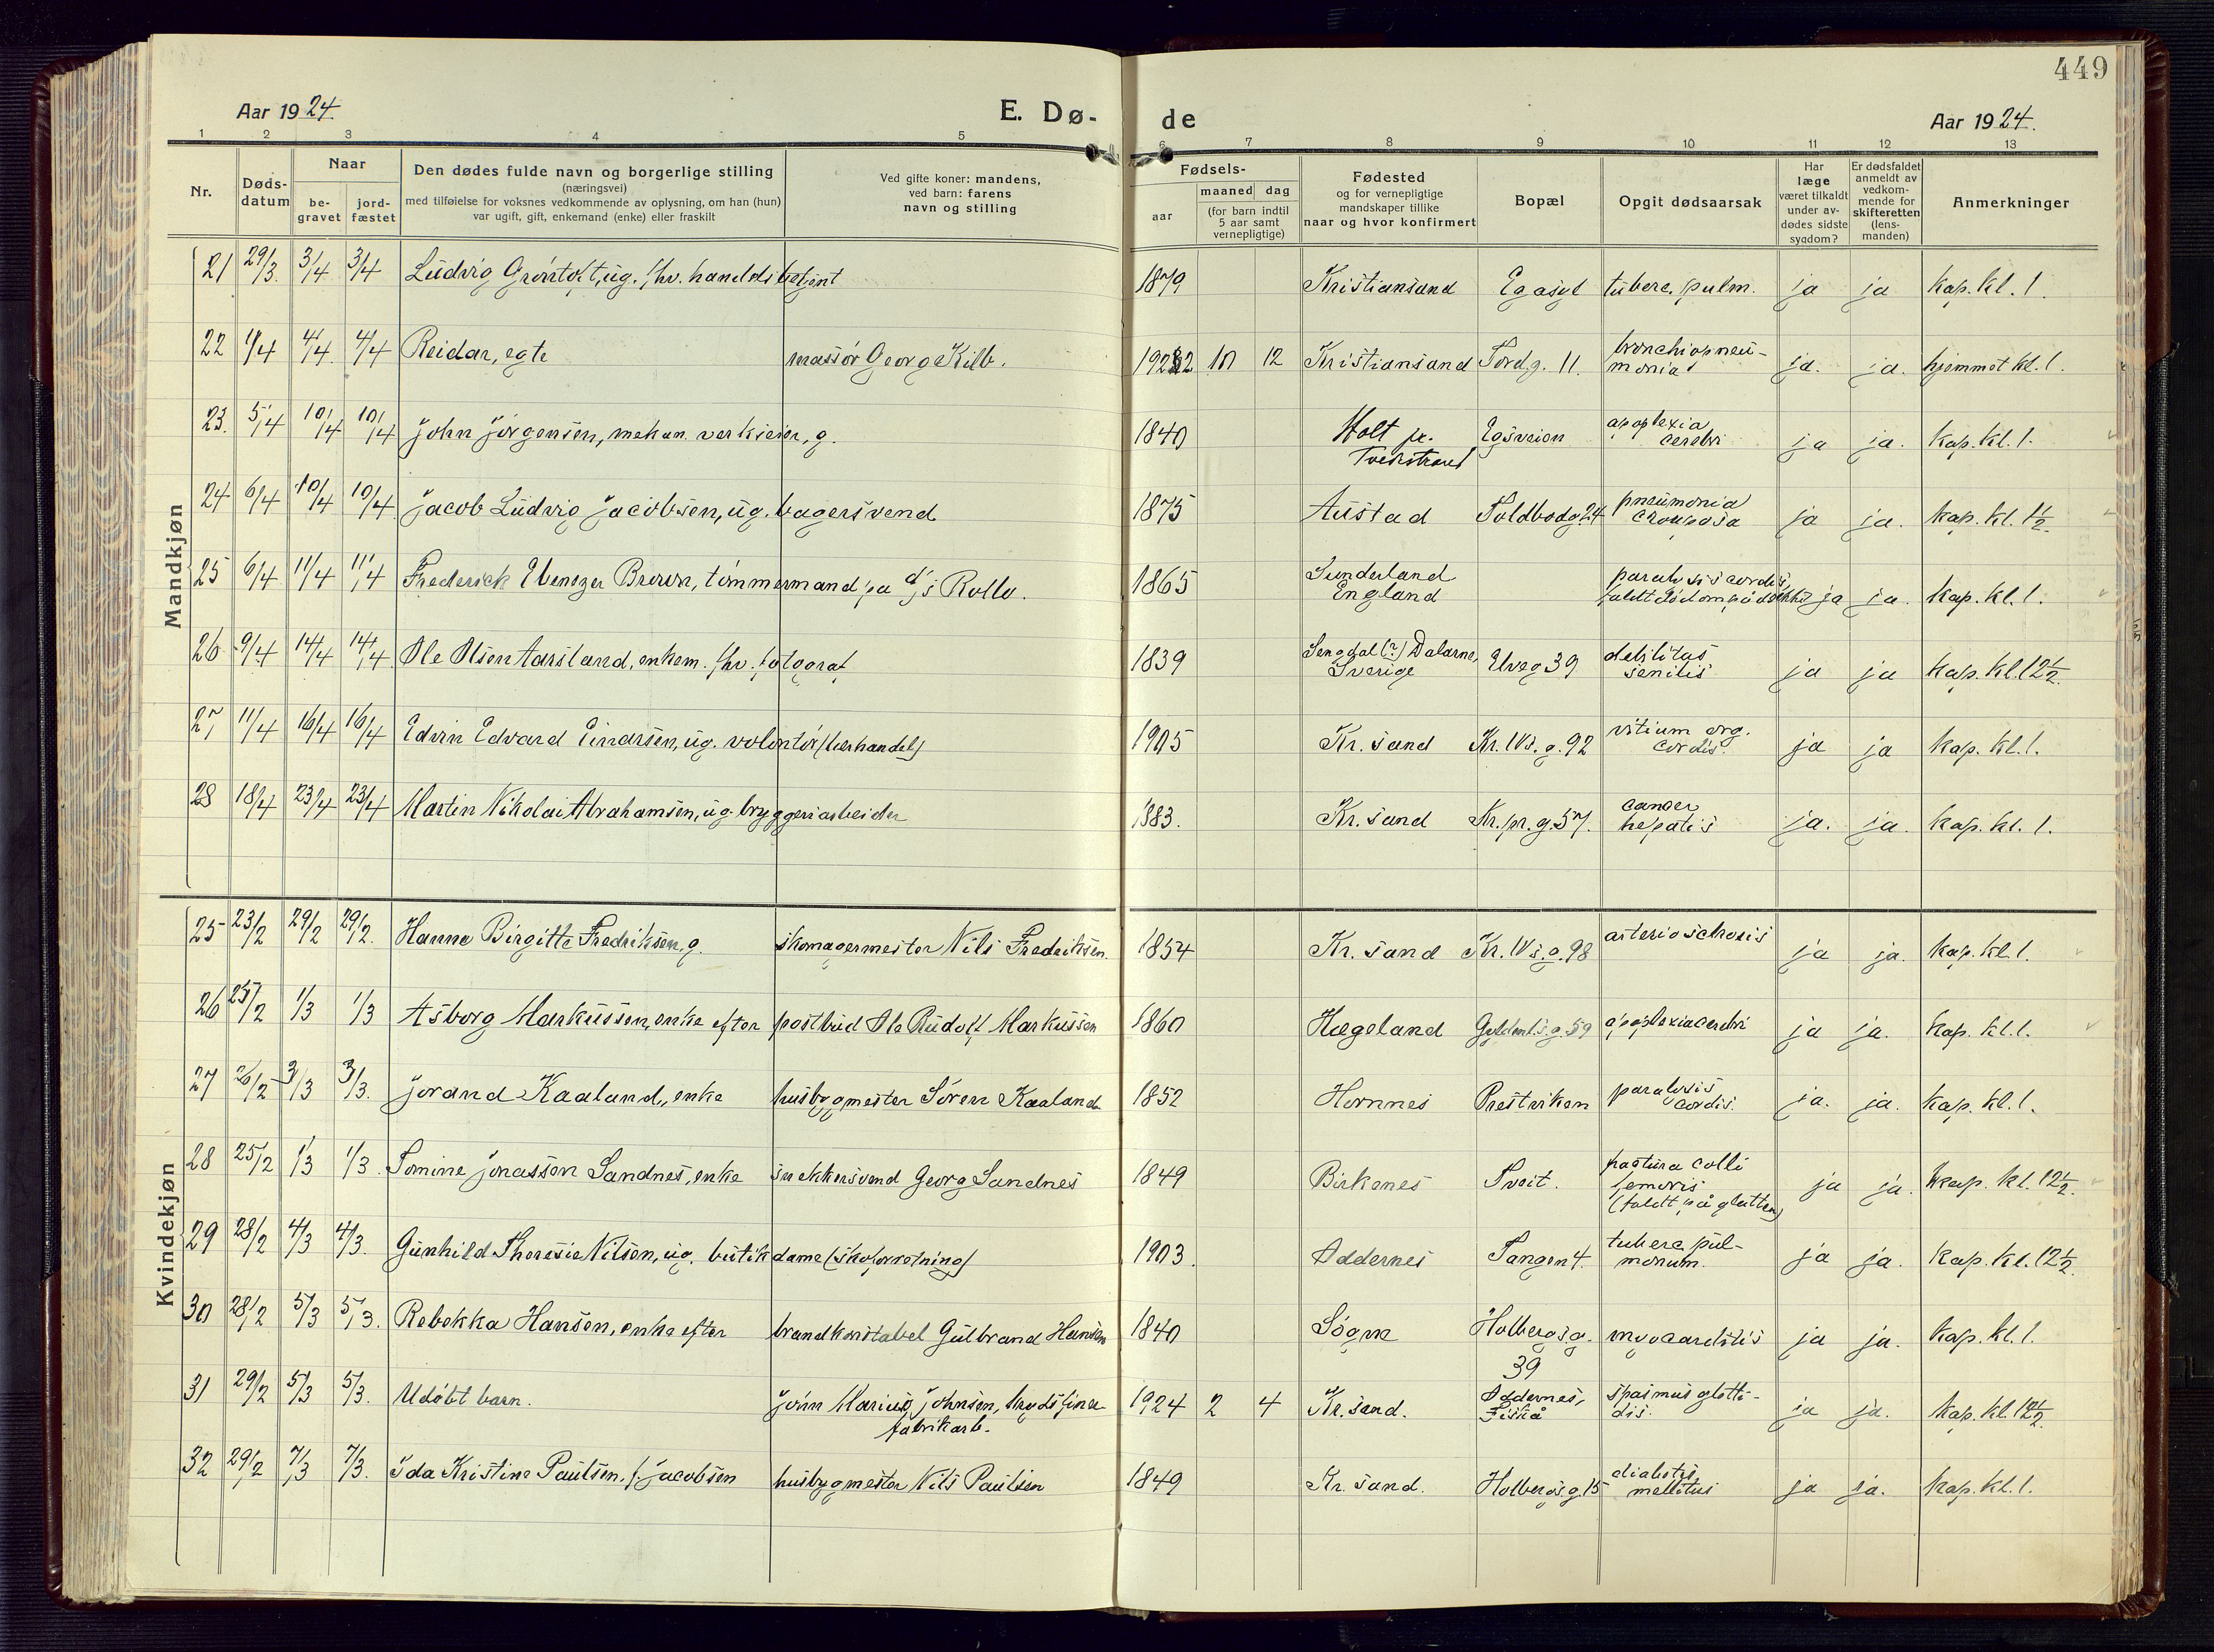 449
Aar 1924. E. Dø- de Aar 1924.
1 2 3 4 5 6 7 8 9 10 11 12 13
Nr.
Døds-
datum
Naar
be-
gravet
jord-
fæstet
Den dødes fulde navn og borgerlige stilling
(næringsvei)
med tilføielse for voksnes vedkommende av oplysning, om han (hun)
var ugift, gift, enkemand (enke) eller fraskilt
Ved gifte koner: mandens,
ved barn: farens
navn og stilling
Fødsels-
aar
maaned dag
(for barn indtil
5 aar samt
vernepligtige)
Fødested
og for vernepligtige
mandskaper tillike
naar og hvor konfirmert
Bopæl
Opgit dødsaarsak
Har
læge
været tilkaldt
under av-
dødes sidste
sygdom?
Er dødsfaldet
anmeldt av
vedkom-
mende for
skifteretten
(lens-
manden)
Anmerkninger
Mandkjøn
21 29/3. 3/4 3/4 Ludvig Grøntoft, ug. fhv. handelsbetjent 1879 Kristiansand Egasyl tuberc. pulm. ja ja kap. kl. 1.
22 1/4 4/4 4/4 Reidar, egte massør Georg Kilb. 1922 10 12 Kristiansand Tordg. 11. bronchiopneu-
monia ja. ja. hjemmet kl. 1.
23. 5/4 10/4 10/4 John Jørgensen, mekan. verkseier, g. 1840 Holt pr.
Tvedestrand Egsveien apoplexia
cerebri ja ja. kap. kl. 1.
24 6/4 10/4 10/4 Jacob Ludvig Jacobsen, ug. bagersvend 1875 Austad Toldbodg. 24 pneumonia
crouposa ja ja. kap. kl. 1 1/2.
25 6/4 11/4 11/4 Frederick Ebenezer Brown, tømmermand på d/s Rollo. 1865 Sunderland
England paralysis cordis,
faldt død om på dækket ja ja. kap. kl. 1.
26 9/4 14/4 14/4 Ole Olsen Aarsland, enkem. fhv. fotograf 1839 Sengdal (?) Dalarne,
Sverige Elveg 39 debilitas
senilis ja ja kap. kl. 12 1/2.
27 11/4 16/4 16/4 Edvin Edvard Einarsen, ug. volontør (lærhandel) 1905 Kr. sand Kr. IVs. g. 92 vitium org.
cordis. ja ja kap. kl. 1.
28 18/4 23/4 23/4 Martin Nikolai Abrahamsen, ug. bryggeriarbeider 1883. Kr. sand Kr. pr. g. 57. cancer
hepatis ja. ja. kap. kl. 1.
Kvindekjøn
25 23/2 29/2 29/2. Hanne Birgitte Fredriksen, g. skomagermester Nils Fredriksen. 1854 Kr. sand Kr. IVs. g. 98 arteriosclrosis ja ja. kap. kl. 1.
26 25/2 1/3 1/3 Asborg Markussen, enke efter postbud Ole Rudolf Markussen 1860 Hægeland Gyldenl.s.g. 59 apoplexia cerebri ja ja. kap. kl. 1.
27 26/2 3/3 3/3. Jorand Kaaland, enke husbygmester Søren Kaaland 1852 Hornnes Prestviken paralysis
cordis. ja. ja. kap. kl. 1.
28 25/2 1/3 1/3. Tomine Jonassen Sandnes, enke snekkersvend Georg Sandnes 1849 Birkenes Tveit. fractura colli
femoris
(faldt på glatten) ja ja. kap. kl. 12 1/2.
29 28/2 4/3 4/3. Gunhild Theresie Nilsen, ug. butikdame (skoforretning) 1903. Oddernes Tangen 4. tuberc. pul-
monum. ja ja. kap. kl. 12 1/2.
30 28/2 5/3 5/3. Rebekka Hansen, enke efter brandkonstabel Gulbrand Hansen 1840 Søgne Holbergs g.
39 myocarditis ja ja. kap. kl. 1.
31 29/2 5/3 5/3. Udøbt barn. Jørn Marius Johnsen,
fabrikarb. 1924 2 4 Kr. sand. Oddernes,
Fiskå spasmus glotti-
dis. ja ja. kap. kl. 12 1/2.
32 29/2 7/3 7/3. Ida Kristine Paulsen, f. Jacobsen husbygmester Nils Paulsen 1849 Kr. sand. Holbergs g. 15 diabetes
mellitus ja ja. kap. kl. 1.